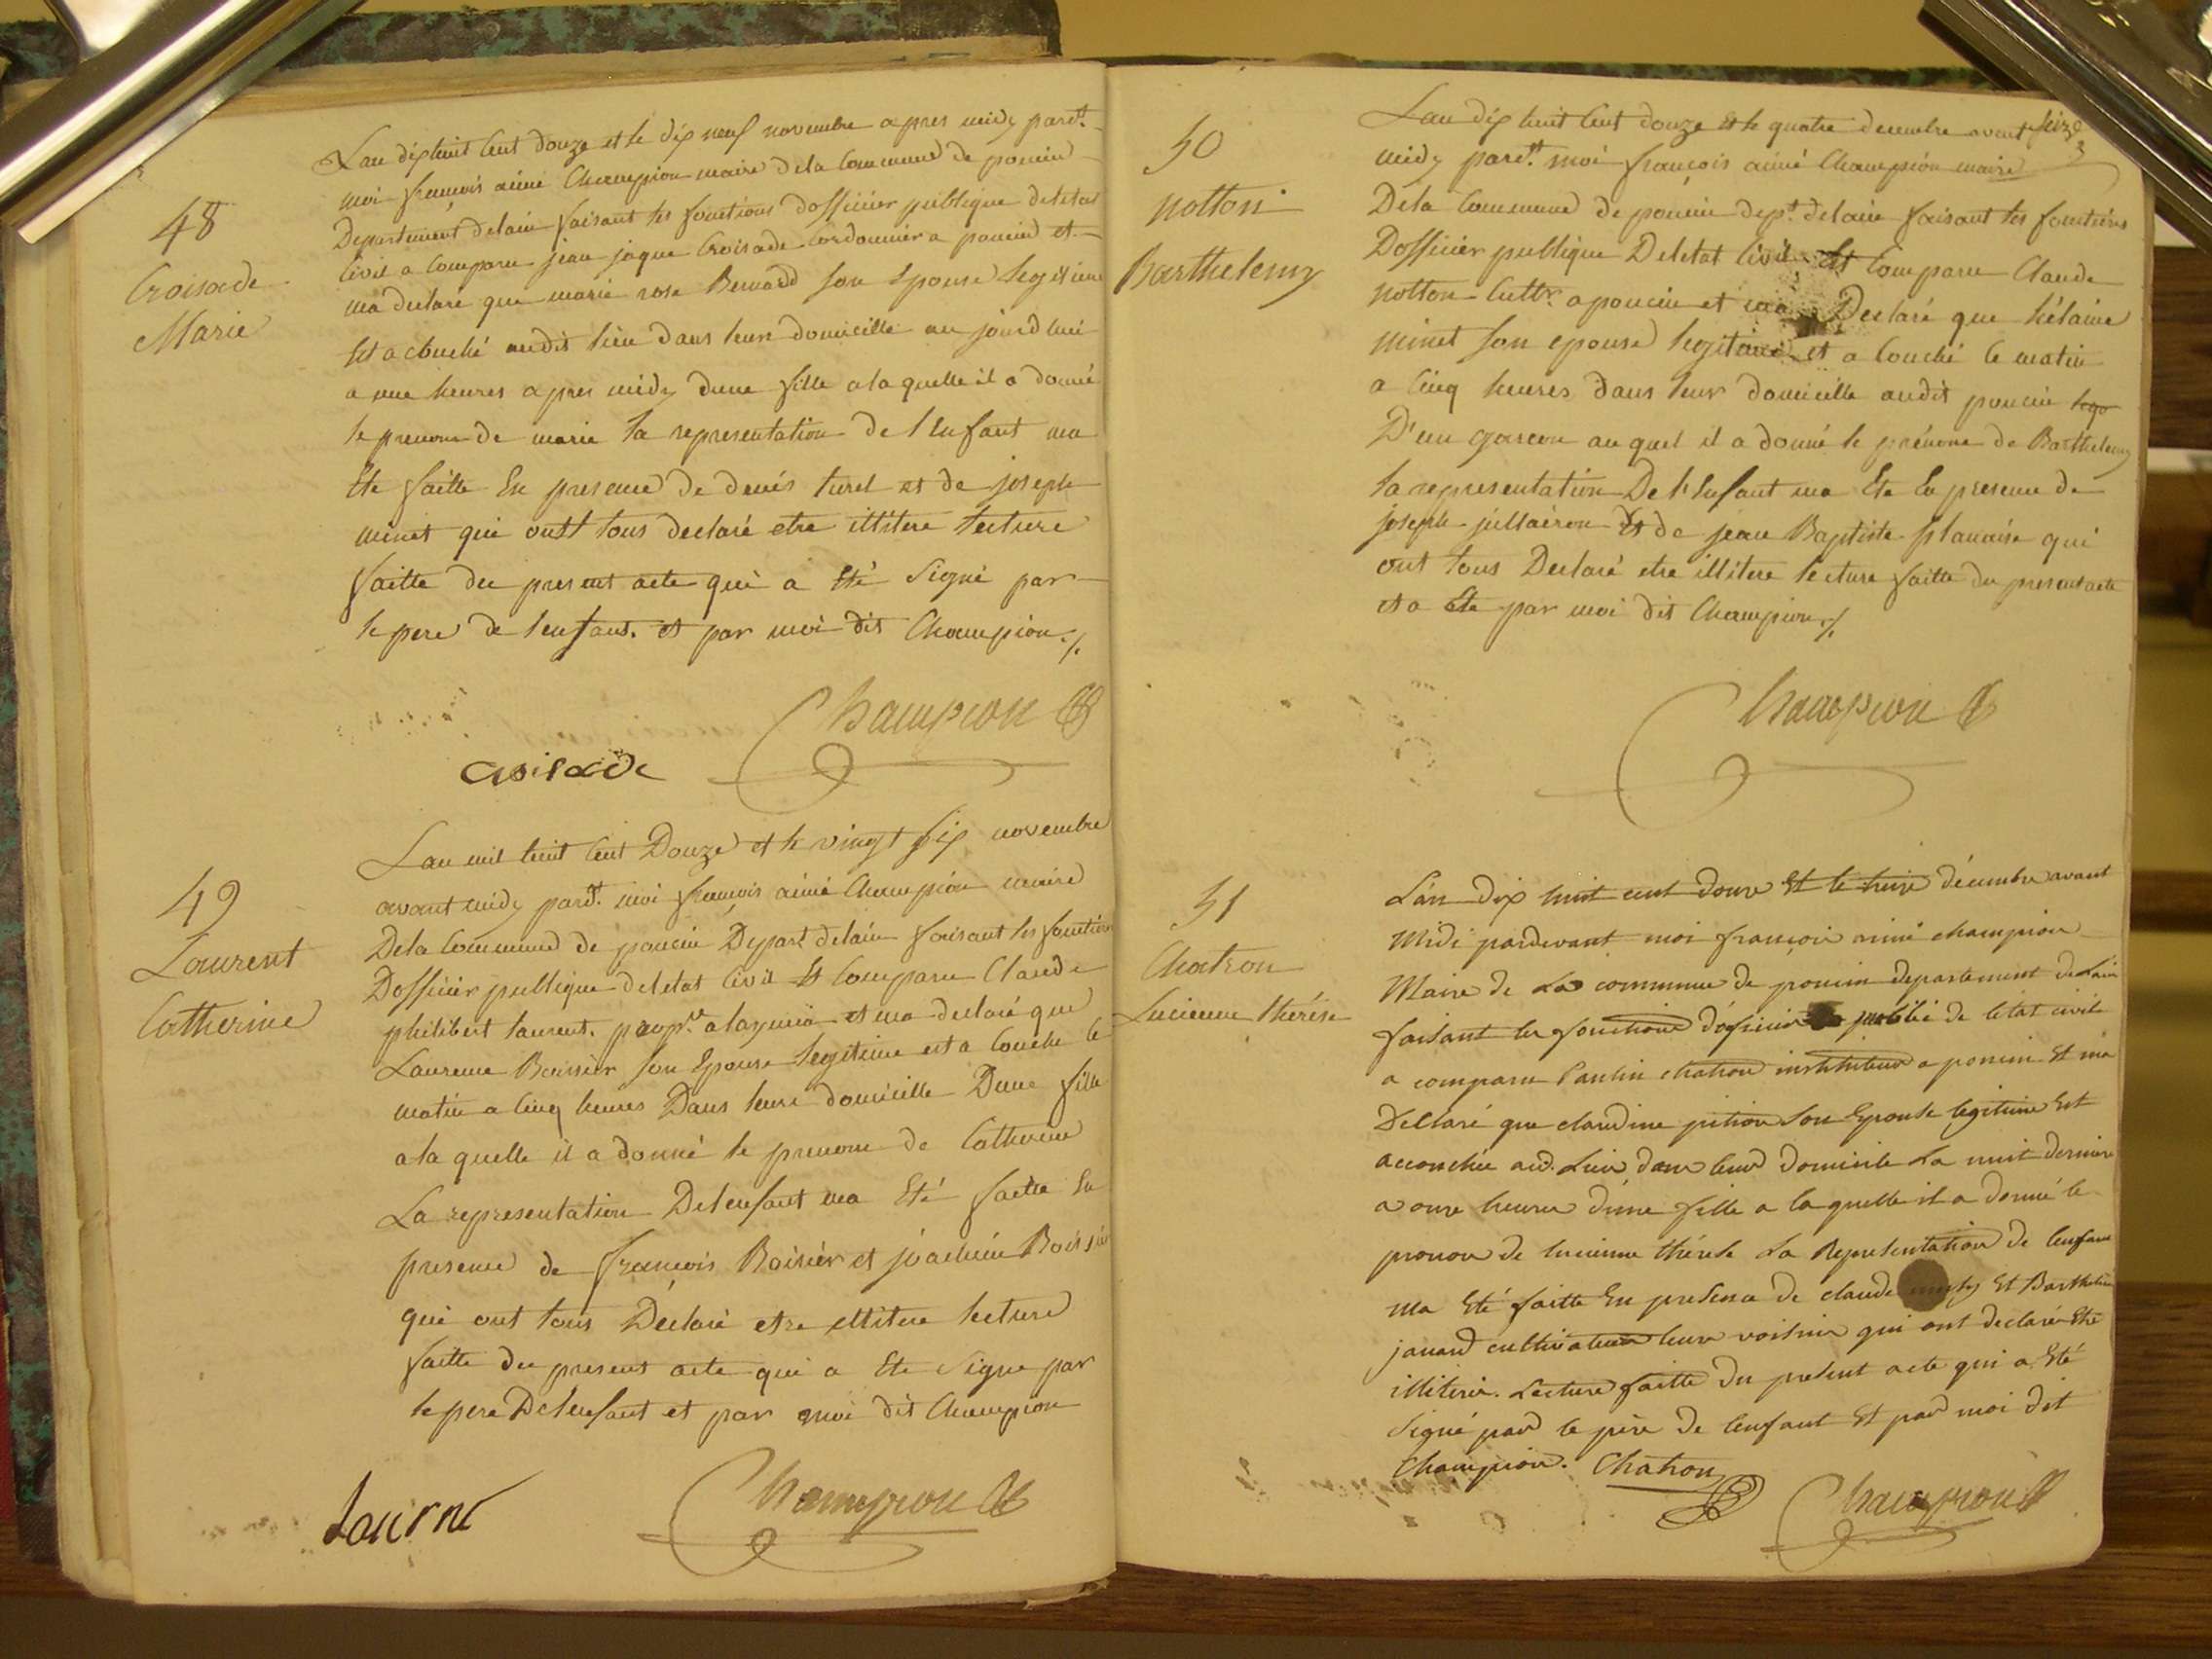 48
Croisade
Marie
Lan dixhuit Cent douze et le dix neuf novembre apres midy pardt.
moi françois aimé Champion maire dela Commune de poncin
Departement delain faisant les fonctions dofficier publique deletat
Civil a Comparu jean jaque Croisade Cordonnier a poncin et
ma declaré que marie rose Bernard son Epouse legitime
Est acouché audit lieu dans leur domicille aujourdhui
a une heures apres midy dune fille ala quelle il a donné
le prenom de marie la representation de lEnfant ma
Ete faitte En presence de denis turel et de joseph
minet qui ont tous declaré etre illitere lecture
faitte du present acte qui a Eté Signé par
le pere de lenfant. et par moi dit Champion ./.
Champion
croisade
49
Laurent
Catherine
Lan mil huit Cent Douze et le vingt six novembre
avant midy pardt. moi françois aimé Champion maire
Dela Commune de poncin Depart delain faisant les fonctions
Dofficier publique deletat Civil Et Comparu Claude
philibert laurent. propre. a et ma declaré que
Laurence Boissier son Epouse legitime est a Couche le
matin a Cinq heures Dans leure domicille Dune fille
ala quelle il a donné le prenom de Catherine
La representation Delenfant ma Eté faitte En
presence de françois Boisier et joachim Boissié
qui ont tous Déclaré etre illitere lecture
faitte du present acte qui a Ete Signe par
le pere Delenfant et par moi dit Champion
Champion
50
notton
Barthelemy
seize
Lan dix huit Cent douze et le quatre decembre avant
midy pardt. moi françois aimé Champion maire
Dela Commune de poncin dept. delain faisant les fonctions
Dofficier publique Deletat Civil Est Comparu Claude
notton Cultr. a poncin et ma Declaré que hélaine
minet son epouse legitime et a Couché le matin
a Cinq heures dans leur domicille audit poncin
D'un garcon au quel il a donné le prénom de Barthelemy
la representation De lEnfant ma Ete En presence de
joseph et de jean Baptiste qui
ont tous Declaré etre illitere lecture faitte du present acte
et a Ete par moi dit Champion ./.
Champion
51
Chatron
Lucienne thérèse
L'an dix huit cent douze Et le treize décembre avant
Midi pardevant moi françois aimé champion
Maire de La commune de poncin departement deLain
faisant les fonctions d'officier public de létat civil
a comparu Paulin chatron instituteur a poncin Et ma
Declaré que claudine pition son Epouse legitime Est
accouchée aud. Lieu dans leur domicile La nuit derniere
a onze heures d'une fille a laquelle il a donné le
prenom de lucienne thérèse La Representation de lenfant
ma Eté faitte En presence de claude Et Barthelemi
janard cultivateurs leurs voisins qui ont declaré Etre
illiteré. Lecture faitte Du present acte qui a Eté
Signé par le père De lenfant Et par moi dit
Champion. Chatron
Champion